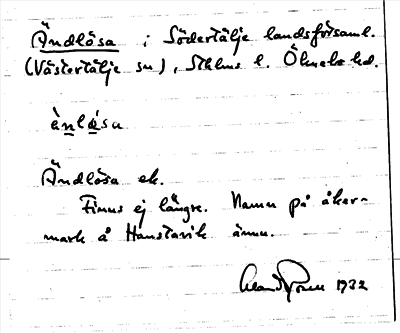 Ändlösa i Södertälje landsförsaml.
(Västertälje sn), Sthlms l. Öknebo hd.
ènlǿsa
Ändlösa ek.
Finns ej längre. Namn på åker-
mark å Hanstavik ännu.
1932